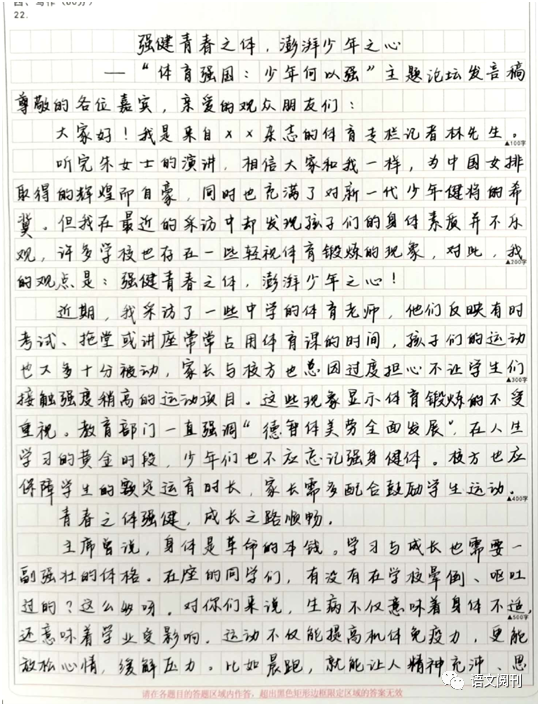 四、写作（60分）
22.
强健青春之体，澎湃少年之心
——“体育强国：少年何以强”主题论坛发言稿
尊敬的各位嘉宾，亲爱的观众朋友们：
大家好！我是来自××杂志的体育专栏记者林先生。
▲100字
听完朱女士的演讲，相信大家和我一样，为中国女排
取得的辉煌而自豪，同时也充满了对新一代少年健将的希
冀。但我在最近的采访中却发现孩子们的身体素质并不乐
观，许多学校也存在一些轻视体育锻炼的现象，对此，我
▲200字
的观点是：强健青春之体，澎湃少年之心！
近期，我采访了一些中学的体育老师，他们反映有时
考试、拖堂或讲座常常占用体育课的时间，孩子们的运动
也大多十分被动，家长与校方也总因过度担心不让学生们
▲300字
接触强度稍高的运动项目。这些现象显示体育锻炼的不受
重视。教育部门一直强调“德智体美劳全面发展”，在人生
学习的黄金时段，少年们也不应忘记强身健体。校方也应
保障学生的额定运育时长，家长需多配合鼓励学生运动。
▲400字
青春之体强健，成长之路顺畅。
主席曾说，身体是革命的本钱。学习与成长也需要一
副强壮的体格。在座的同学们，有没有在学校晕倒、呕吐
过的？这么多呀。对你们来说，生病不仅意味着身体不适，
▲500字
还意味着学业受影响。运动不仅能提高机体免疫力，更能
放松心情，缓解压力。比如晨跑，就能让人精神充沛、思
请在各题目的答题区域内作答，超出黑色矩形边框限定区域的答案无效
语文阅刊